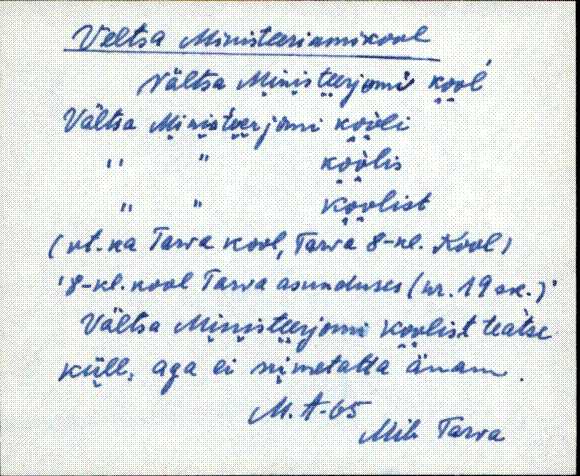 Veltsa Ministeeriumikool
Vältsa Ministeerjomi kool
Vältsa Ministeerjomi kooli
" " koolis
" " koolist
(vt. ka Tarva kool, Tarva 8-kl. kool)
'8-kl. kool Tarva asunduses (vr. 19 sk.)'
Vältsa Ministeerjomi koolist teatse
küll, aga ei nimetatta änam.
M. A-65
Mih Tarva